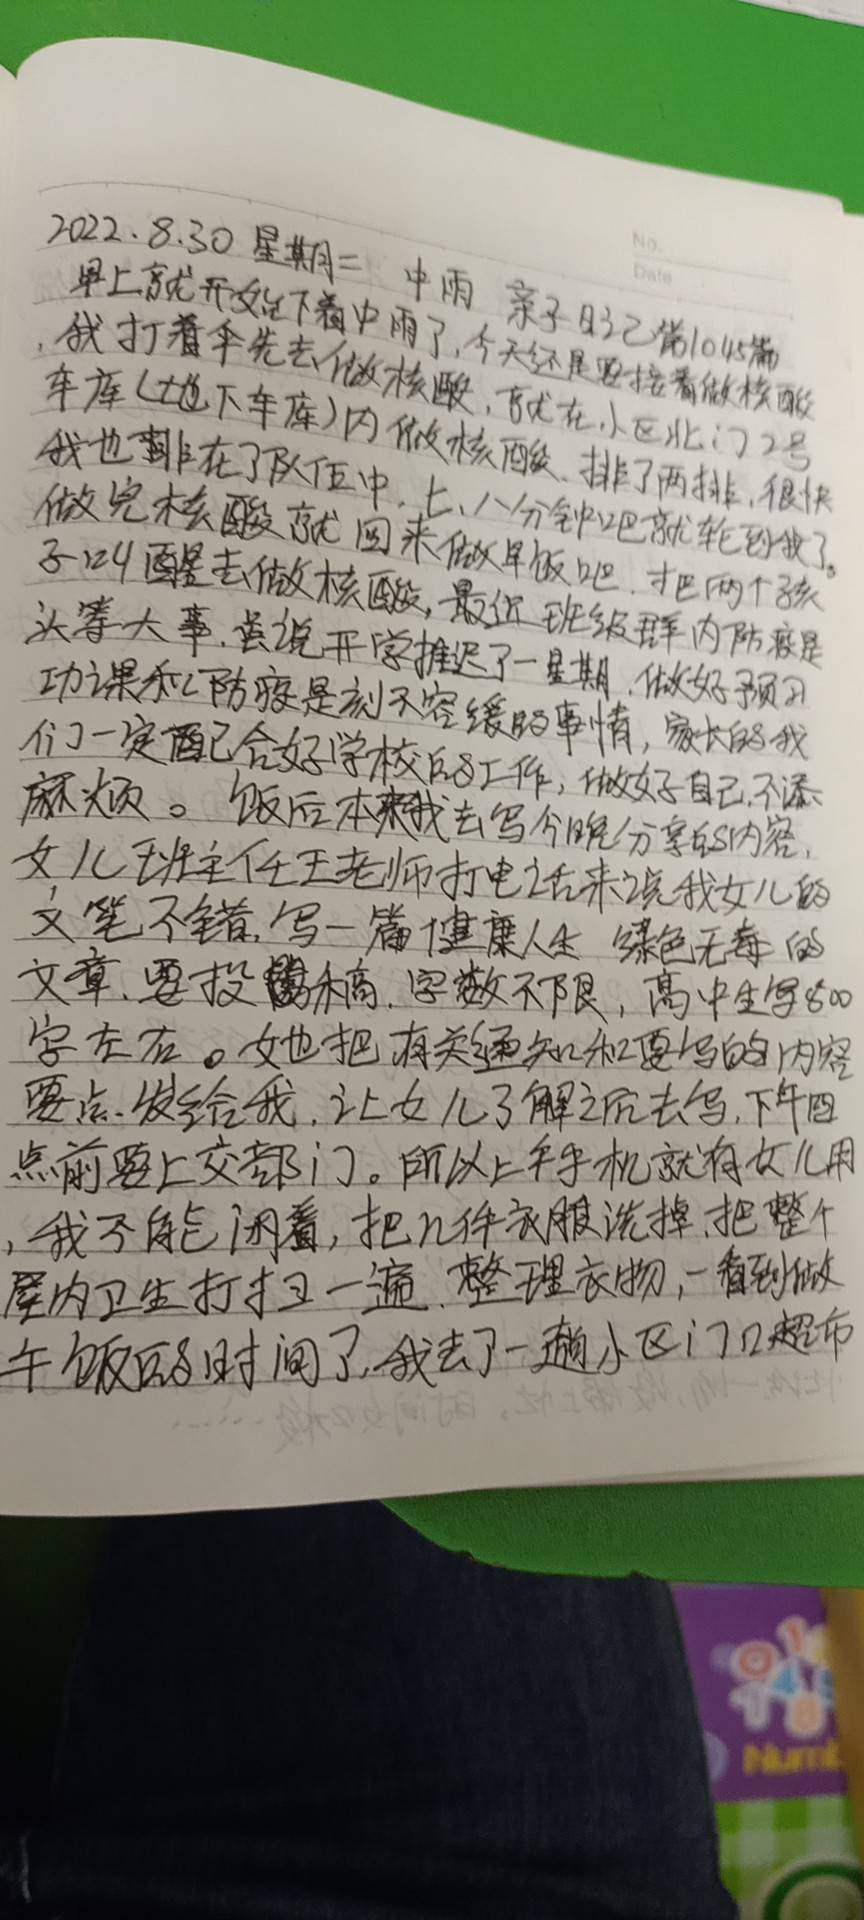 No.
Date
2022.8.30 星期二 中雨 亲子日记第1045篇
早上就开始下着中雨了,今天还是要接着做核酸
,我打着伞先去做核酸,就在小区北门2号
车库(地下车库)内做核酸、排了两排,很快
我也排在了队伍中,七、八分钟吧就轮到我了。
做完核酸就回来做早饭吧,才把两个孩
子叫醒去做核酸,最近班级群内防疫是
头等大事,虽说开学推迟了一星期,做好预习
功课和防疫是刻不容缓的事情,家长的我
们一定配合好学校的工作,做好自己,不添
麻烦。饭后本来我去写今晚分享的内容,
女儿班主任王老师打电话来说我女儿的
文笔不错,写一篇健康人生 绿色无毒的
文章、要投稿,字数不限,高中生写800
字左右。她也把有关通知和要写的内容
要点、发给我,让女儿了解之后去写,下午四
点前要上交部门。所以上午手机就有女儿用
,我不能闲着,把几件衣服洗掉,把整个
屋内卫生打扫一遍、整理衣物,一看到做
午饭的时间了,我去了一趟小区门口超市
Num